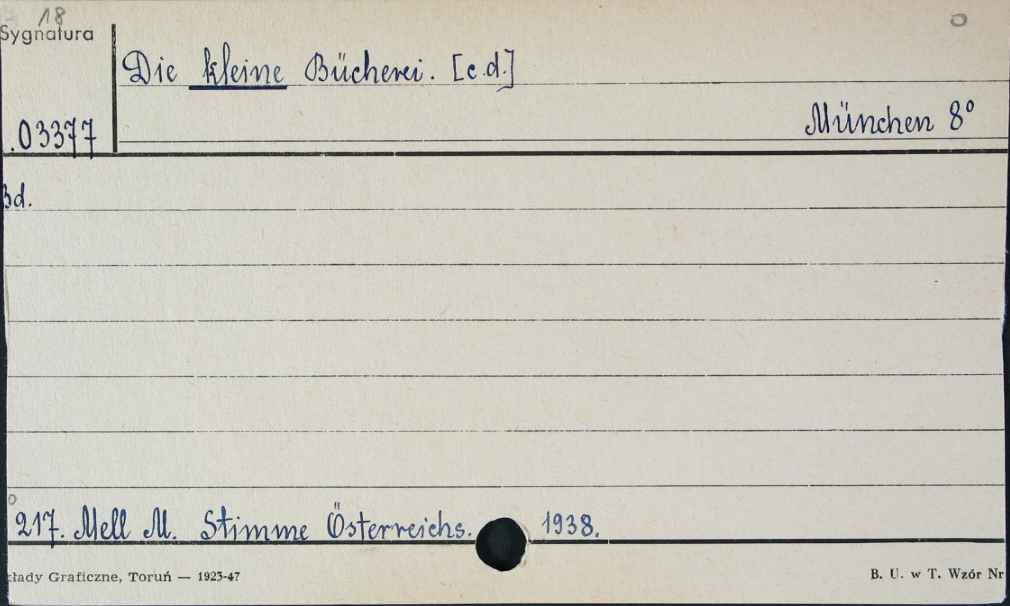 18
Sygnatura
Die kleine Bücherei. [c.d.]
.03377
München 8°
Bd.
217. Mell M. Stimme Österreichs. 1938.
kłady Graficzne, Toruń — 1923-47
B. U. w T. Wzór Nr